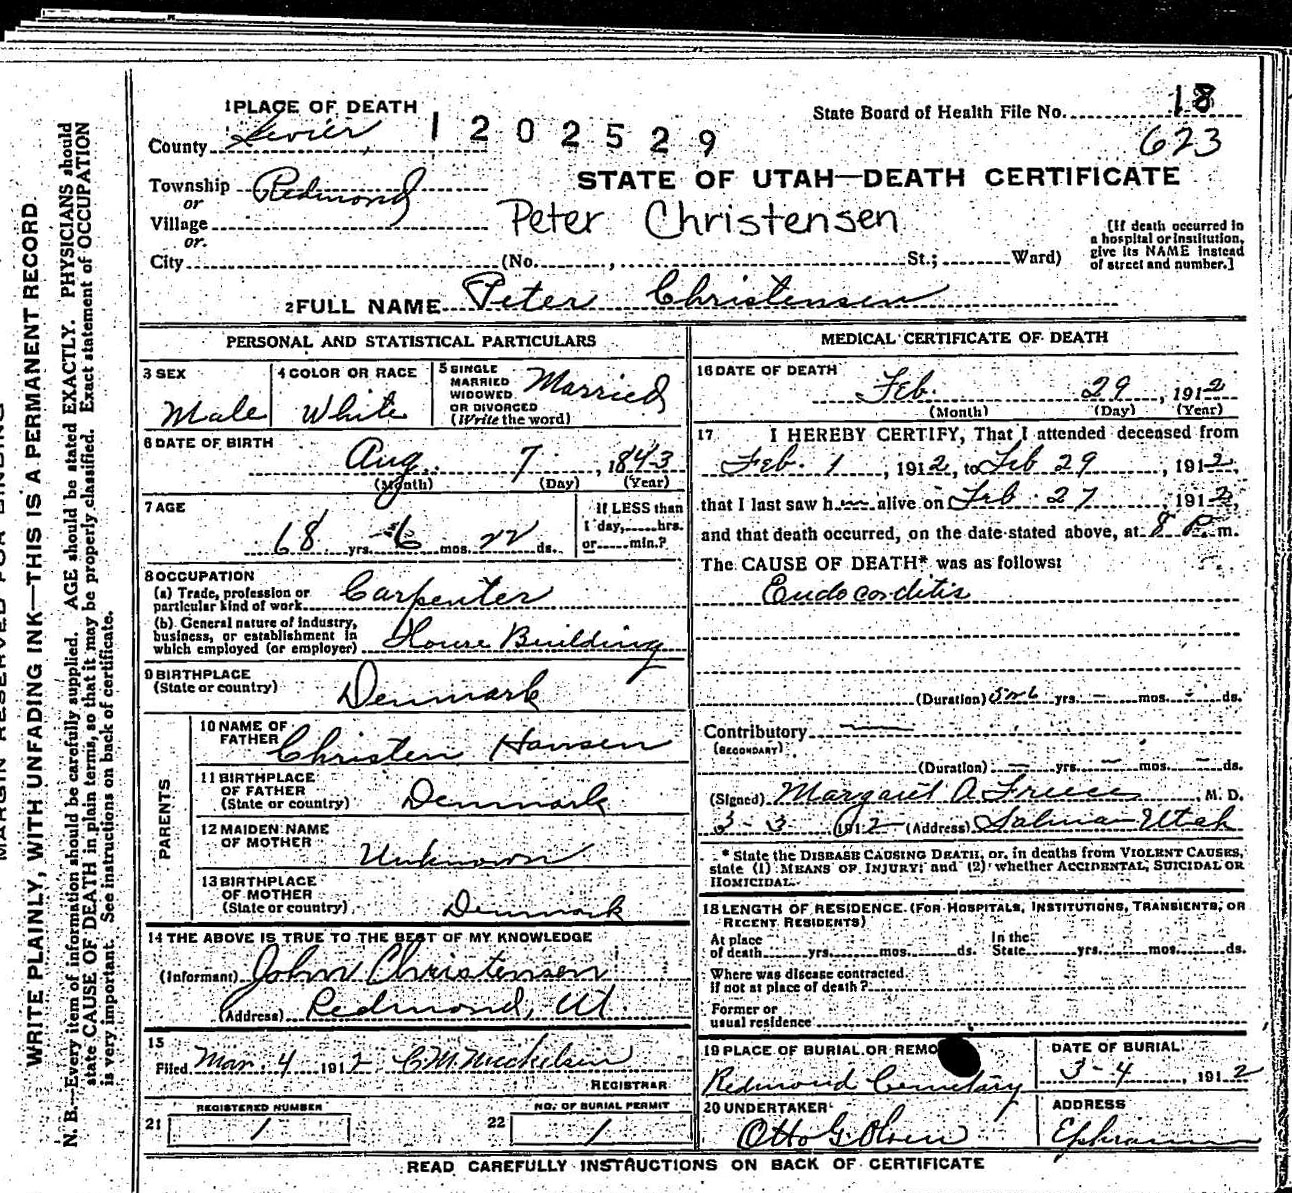 1 PLACE OF DEATH
State Board of Health File No. 18
County Sevier, 1202529
623
Township Redmond
or
STATE OF UTAH—DEATH CERTIFICATE
Village
or
Peter Christensen
[If death occurred in a hospital or institution, give its NAME instead of street and number.]
City (No. , St.; Ward)
2 FULL NAME Peter Christensen
PERSONAL AND STATISTICAL PARTICULARS
3 SEX
Male
4 COLOR OR RACE
White
5 SINGLE
MARRIED
WIDOWED
OR DIVORCED
(Write the word)
Married
6 DATE OF BIRTH
Aug. 7, 1843
(Month) (Day) (Year)
7 AGE
68 yrs. 6 mos. 22 ds.
If LESS than
1 day, hrs.
or min.?
8 OCCUPATION
(a) Trade, profession or
particular kind of work Carpenter
(b) General nature of industry,
business, or establishment in
which employed (or employer) House Building
9 BIRTHPLACE
(State or country) Denmark
PARENTS
10 NAME OF
FATHER Christen Hansen
11 BIRTHPLACE
OF FATHER
(State or country) Denmark
12 MAIDEN NAME
OF MOTHER Unknown
13 BIRTHPLACE
OF MOTHER
(State or country) Denmark
14 THE ABOVE IS TRUE TO THE BEST OF MY KNOWLEDGE
(Informant) John Christensen
(Address) Redmond, Ut
15
Filed Mar. 4 1912 C M Mickelsen
REGISTRAR
21 REGISTERED NUMBER
1
22 NO. OF BURIAL PERMIT
1
MEDICAL CERTIFICATE OF DEATH
16 DATE OF DEATH
Feb. 29, 1912
(Month) (Day) (Year)
17 I HEREBY CERTIFY, That I attended deceased from
Feb. 1, 1912, to Feb 29, 1912,
that I last saw h alive on Feb. 27, 1912,
and that death occurred, on the date stated above, at 8 P. m.
The CAUSE OF DEATH* was as follows:
Endocarditis
(Duration) yrs. – mos. – ds.
Contributory —
(SECONDARY)
(Duration) — yrs. – mos. – ds.
(Signed) Margaret A Freece, M. D.
3-3 1912 (Address) Salina Utah
* State the DISEASE CAUSING DEATH, or, in deaths from VIOLENT CAUSES,
state (1) MEANS OF INJURY; and (2) whether ACCIDENTAL, SUICIDAL OR
HOMICIDAL.
18 LENGTH OF RESIDENCE (FOR HOSPITALS, INSTITUTIONS, TRANSIENTS, OR
RECENT RESIDENTS)
At place
of death yrs. mos. ds.
In the
State yrs. mos. ds.
Where was disease contracted
if not at place of death?
Former or
usual residence
19 PLACE OF BURIAL OR REMO
Redmond Cemetary
DATE OF BURIAL
3-4, 1912
20 UNDERTAKER
Otto G. Olsen
ADDRESS
Ephraim
READ CAREFULLY INSTRUCTIONS ON BACK OF CERTIFICATE
MARGIN RESERVED FOR BINDING
WRITE PLAINLY, WITH UNFADING INK—THIS IS A PERMANENT RECORD
N. B.—Every item of information should be carefully supplied. AGE should be stated EXACTLY. PHYSICIANS should
state CAUSE OF DEATH in plain terms, so that it may be properly classified. Exact statement of OCCUPATION
is very important. See instructions on back of certificate.